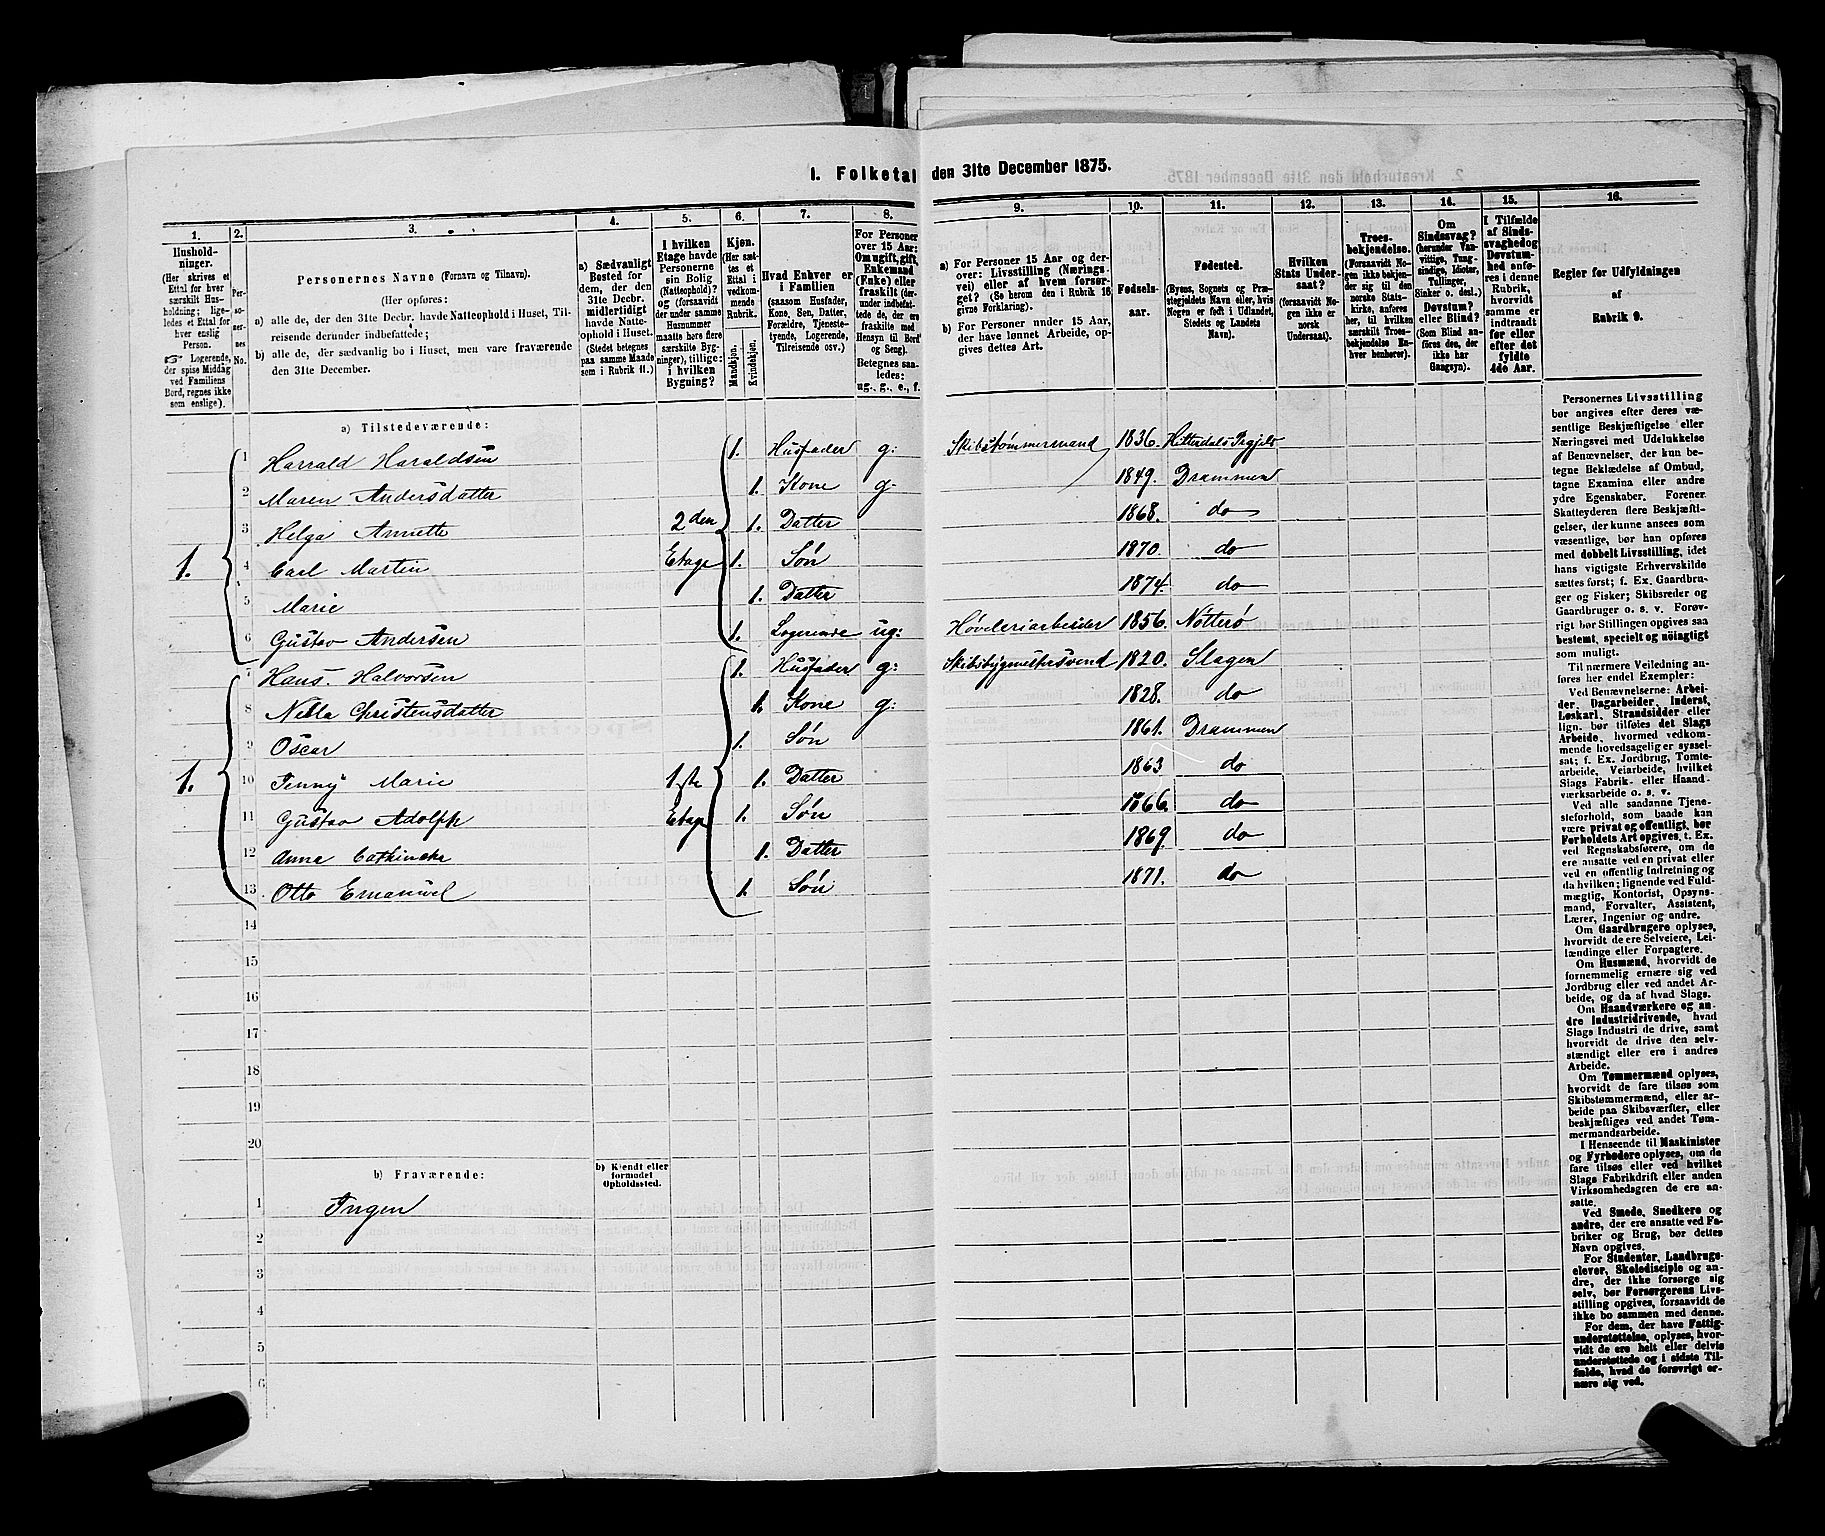 1. Folketal den 31te December 1875.
1. 2. 3. 4. 5. 6. 7. 8. 9. 10. 11. 12. 13. 14. 15. 16.
Hushold-
ninger.
(Her skrives et
Ettal for hver
særskilt Hus-
holdning; lige-
ledes et Ettal for
hver enslig
Person.
☞ Logerende,
der spise Middag
ved Familiens
Bord, regnes ikke
som enslige).
Per-
so-
ner-
nes
No.
Personernes Navne (Fornavn og Tilnavn).
(Her opføres:
a) alle de, der den 31te Decbr. havde Natteophold i Huset, Til-
reisende derunder indbefattede;
b) alle de, der sædvanlig bo i Huset, men vare fraværende
den 31te December.
a) Sædvanligt
Bosted for
dem, der den
31te Decbr.
midlertidigt
havde Natte-
ophold i Huset.
(Stedet betegnes
paa samme Maade
som i Rubrik 11.)
I hvilken
Etage havde
Personerne
sin Bolig
(Natteophold)?
og (forsaavidt
der under samme
Husnummer
maatte høre flere
særskilte Byg-
ninger), tillige:
i hvilken
Bygning?
Kjøn.
(Her sæt-
tes et
Ettal i
vedkom-
mende
Rubrik.
Mandkjøn.
Kvindekjøn.
Hvad Enhver er
i Familien
(saasom Husfader,
Kone, Søn, Datter,
Forældre, Tjeneste-
tyende, Logerende,
Tilreisende osv.)
For Personer
over 15 Aar:
Om ugift, gift,
Enkemand
(Enke) eller
fraskilt (der-
under indbefat-
tede de, der ere
fraskilte med
Hensyn til Bord
og Seng).
Betegnes saa-
ledes:
ug., g., e., f.
a) For Personer 15 Aar og der-
over: Livsstilling (Nærings-
vei) eller af hvem forsør-
get? (Se herom den i Rubrik 16
givne Forklaring).
b) For Personer under 15 Aar,
der have lønnet Arbeide, op-
gives dettes Art.
Fødsels-
aar.
Fødested.
(Byens, Sognets og Præ-
stegjeldets Navn eller, hvis
Nogen er født i Udlandet,
Stedets og Landets
Navn).
Hvilken
Stats Under-
saat?
(forsaavidt No-
gen ikke er
norsk
Undersaat).
Troes-
bekjendelse.
(Forsaavidt No-
gen ikke bekjen-
der sig til den
norske Stats-
kirke, anføres
her, til hvilket
særskilt Troes-
bekjendelse En-
hver henhører).
Om
Sindssvag?
(herunder Van-
vittige, Tung-
sindige, Idioter,
Tullinger,
Sinker o. desl.)
Døvstum?
eller Blind?
(Som Blind an-
føres de, der
ikke har
Gangsyn).
I Tilfælde
af Sinds-
svaghed og
Døvstum-
hed anfø-
res i denne
Rubrik,
hvorvidt
samme er
indtraadt
før eller
efter det
fyldte
4de Aar.
Regler for Udfyldningen
af
Rubrik 9.
a) Tilstedeværende:
1 Harrald Haraldsen 1. Husfader g: Skibstømmermand 1836. Hitterdals Prgjeld
2 Maren Andersdatter 1. Kone g. 1849. Drammen
3 Helga Annette 2den 1. Datter 1868. do
1. 4 Carl Martin Etage 1. Søn 1870. do
5 Marie 1. Datter 1874. do
6 Gustav Andersen 1. Logerende ug: Høvleriarbeider 1856. Nötterö
7 Hans. Halvorsen 1. Husfader g: Skibsbygmestersvend 1820. Slagen
8 Nella Christensdatter 1. Kone g: 1828. do
9 Oscar 1. Søn 1861. Drammen
1. 10 Jenny Marie 1ste 1. Datter 1863 do
11 Gustav Adolph Etage 1. Søn 1866. do
12 Anna Cathincka 1. Datter 1869. do
13 Otto Emanuel 1. Søn 1871. do
14
15
16
17
18
19
20
b) Fraværende:
b) Kjendt eller
formodet
Opholdssted.
1 Ingen
2
3
4
5
6
Personernes Livsstilling
bør angives efter deres væ-
sentlige Beskjæftigelse eller
Næringsvei med Udelukkelse
af Benævnelser, der kun be-
tegne Beklædelse af Ombud,
tagne Examina eller andre
ydre Egenskaber. Forener
Skatteyderen flere Beskjæfti-
gelser, der kunne ansees som
væsentlige, bør han opføres
med dobbelt Livsstilling, idet
hans vigtigste Erhvervskilde
sættes først; f. Ex. Gaardbru-
ger og Fisker; Skibsreder og
Gaardbruger o. s. v. Forøv-
rigt bør Stillingen opgives saa
bestemt, specielt og nöiagtigt
som muligt.
Til nærmere Veiledning an-
føres her endel Exempler:
Ved Benævnelserne: Arbei-
der, Dagarbeider, Inderst,
Løskarl, Strandsidder eller
lign. bør tilføies det Slags
Arbeide, hvormed vedkom-
mende hovedsagelig er syssel-
sat; f. Ex. Jordbrug, Tomte-
arbeide, Veiarbeide, hvilket
Slags Fabrik- eller Haand-
værksarbeide o. s. v.
Ved alle saadanne Tjene-
steforhold, som baade kan
være privat og offentligt, bør
Forholdets Art opgives, t. Ex.
ved Regnskabsførere, om de
ere ansatte ved en privat eller
ved en offentlig Indretning og
da hvilken; lignende ved Fuld-
mægtig, Kontorist, Opsyns-
mand, Forvalter, Assistent,
Lærer, Ingeniør og andre.
Om Gaardbrugere oplyses,
hvorvidt de ere Selveiere, Lei-
lændinge eller Forpagtere.
Om Husmænd, hvorvidt de
fornemmelig ernære sig ved
Jordbrug eller ved andet Ar-
beide, og da af hvad Slags.
Om Haandværkere og an-
dre Industridrivende, hvad
Slags Industri de drive, samt
hvorvidt de drive den selv-
stændigt eller ere i andres
Arbeide.
Om Tømmermænd oplyses,
hvorvidt de fare tilsøs som
Skibstømmermænd, eller ar-
beide paa Skibsværfter, eller
beskjæftiges ved andet Tøm-
mermandsarbeide.
I Henseende til Maskinister
og Fyrbødere oplyses, om de
fare tilsøs eller ved hvilket
Slags Fabrikdrift eller anden
Virksomhedsgren de ere an-
satte.
Ved Smede, Snedkere og
andre, der ere ansatte ved Fa-
briker og Brug, bør dettes
Navn opgives.
For Studenter, Landbrugs-
elever, Skoledisciple og an-
dre, der ikke forsørge sig
selv, bør Forsørgerens Livs-
stilling opgives, forsaavidt de
ikke bo sammen med denne.
For dem, der have Fattig-
understøttelse, oplyses, hvor-
vidt de ere helt eller delvis
understøttede og i sidste Til-
fælde, hvad de forøvrigt er-
nære sig ved.